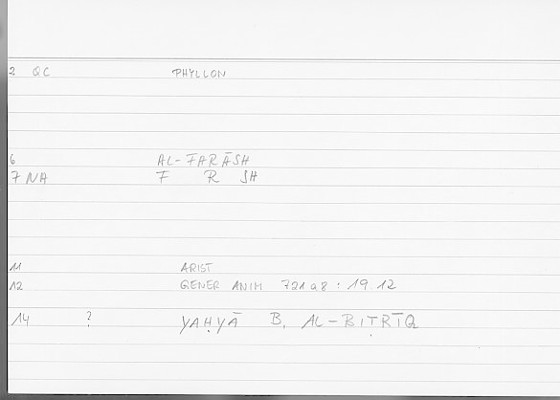 2 QC PHYLLON
6 AL-FARĀSH
7 NA F R SH
11 ARIST
12 GENER ANIM 721a8 : 19.12
14 ? YAḤYĀ B. AL-BIṬRĪQ